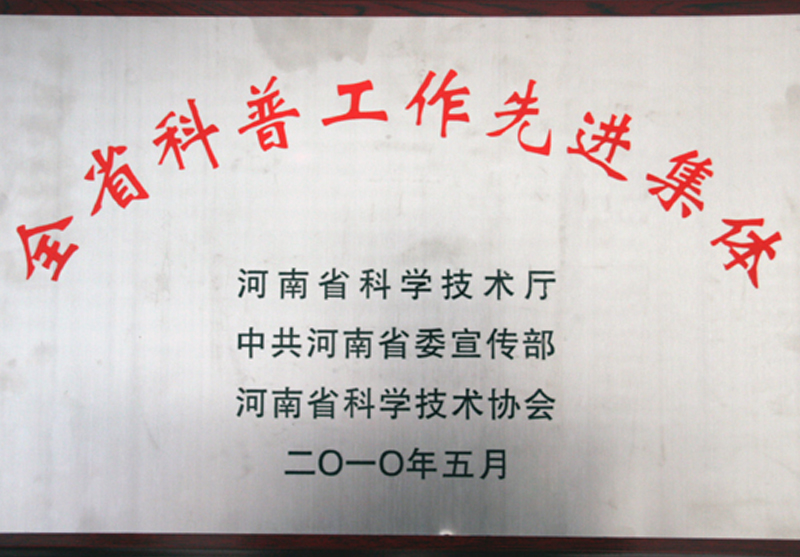 全省科普工作先进集体
河南省科学技术厅
中共河南省委宣传部
河南省科学技术协会
二〇一〇年五月